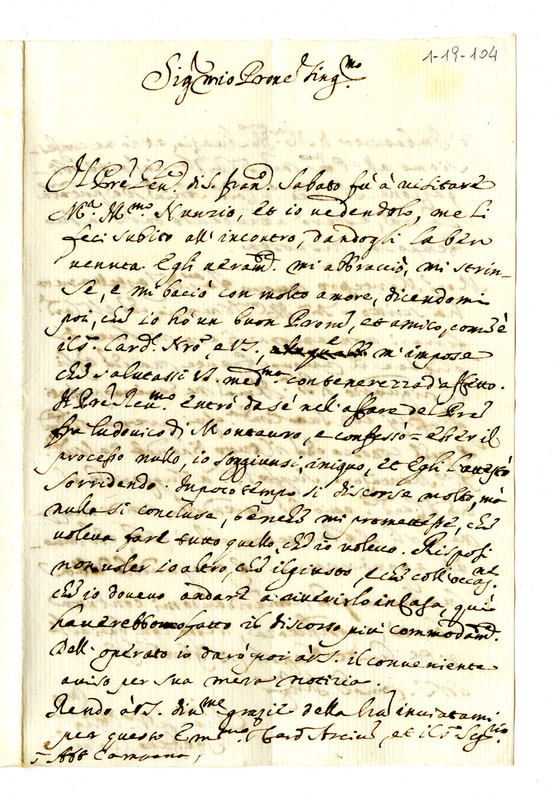 1-19-104
Sig.r mio Prone Sing.mo
Il Pre Gen. di S. Fran.o Sabato fù à visitare
M.r Ill.mo Nunzio, et io vedendolo, me li
feci subito all'incontro, dandogli la ben
venuta. Egli veram.te mi abbracciò, mi strin-
se, e mi baciò con molto amore, dicendomi
poi, che io hò un buon Prone, et amico, com'è
il S. Card. Nro, e VS, m'impose
che salutassi VS. med.ma con tenerezza d'affetto.
Il Pre Rev.mo entrò da sé nell'affare del Pre
fra Ludovico di Montauro, e confessò esser il
processo nullo, io soggiunsi, iniquo, et Egli l'attestò
sorridendo. In poco tempo si discorse molto, mà
nulla si concluse, benche mi promettesse, che
voleva fare tutto quello, che io volevo. Risposi
non voler io altro, che il giusto, e che coll'occas.ne
che io dovevo andare a riverirlo in Casa, quivi
haverebbomo fatto il discorso più commodam.te
Dell'operato io darò poi à VS. il conveniente
aviso per sua mera notizia.
Rendo à VS. div.me grazie della inviatami
per questo Em.mo et il S.
Abb. Campana,